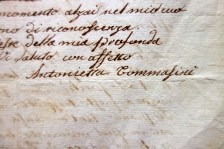 momento alzai nel mio cuo
no di riconoscenza.
della mia profonda
saluto con affetto
Antonietta Tommasini